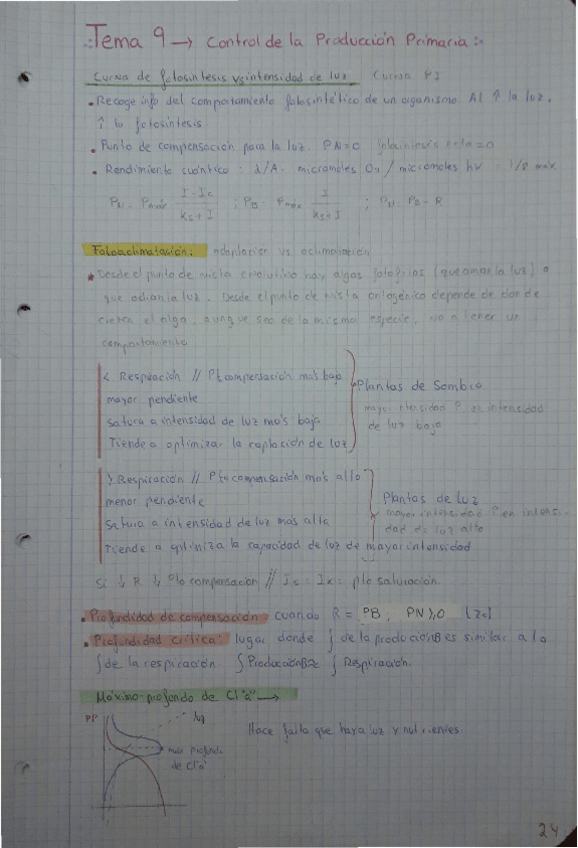 Tema 9 → Control de la Producción Primaria:
Curva de fotosíntesis vs intensidad de luz Curva PI
• Recoge info del comportamiento fotosintético de un organismo. Al ↑ la luz,
↑ la fotosíntesis
• Punto de compensación para la luz. PN=0 fotosíntesis neta=0
• Rendimiento cuántico: micromoles O₂ / micromoles hv
PN = Pmáx (I - Ic)/(ks + I) ; PB = Pmáx I/(ks + I) ; PN = PB - R
Fotoaclimatación: adaptación vs aclimatación
* Desde el punto de vista evolutivo hay algas fotófilas (que aman la luz) o
que odian la luz. Desde el punto de vista ontogénico depende de donde
crezca el alga, aunque sea de la misma especie, va a tener un
comportamiento
< Respiración // Pt compensación más bajo
mayor pendiente
satura a intensidad de luz más baja
Tiende a optimizar la captación de luz
Plantas de Sombra
mayor intensidad P en intensidad
de luz baja
> Respiración // Pto compensación más alto
menor pendiente
Satura a intensidad de luz más alta
Tiende a optimiza la capacidad de luz de mayor intensidad
Plantas de luz
mayor intensidad P en intensi-
dad de luz alta
Si ↓ R ↓ Pto compensación // Is = Ik = pto saturación.
• Profundidad de compensación cuando R = PB, PN ≥ 0 [Zc]
• Profundidad crítica: lugar donde ∫ de la producción B es similar a la
∫ de la respiración ∫ Producción B ≈ ∫ Respiración.
Máximo profundo de Cl "a" →
PP
luz
Hace falta que haya luz y nutrientes.
max profundo
de Cl "a"
24